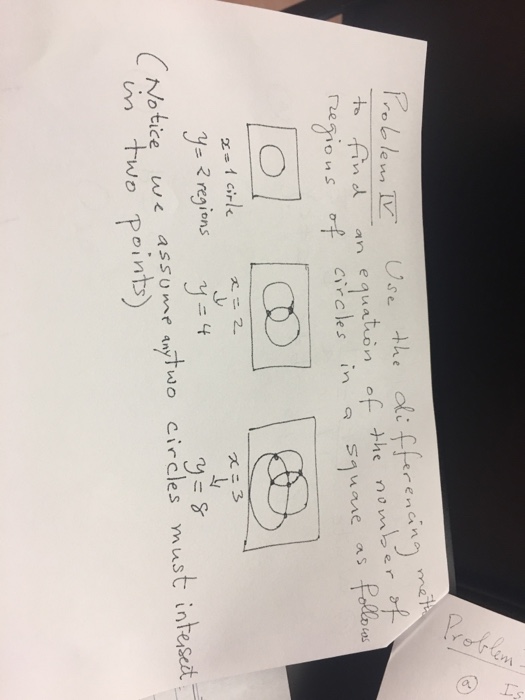 Problem IV Use the differencing meth
to find an equation of the number of
regions of circles in a square as follows
x = 1 cirle
y = 2 regions
x = 2
y = 4
x = 3
y = 8
(Notice we assume any two circles must intersect
in two points)
Problem
a Is